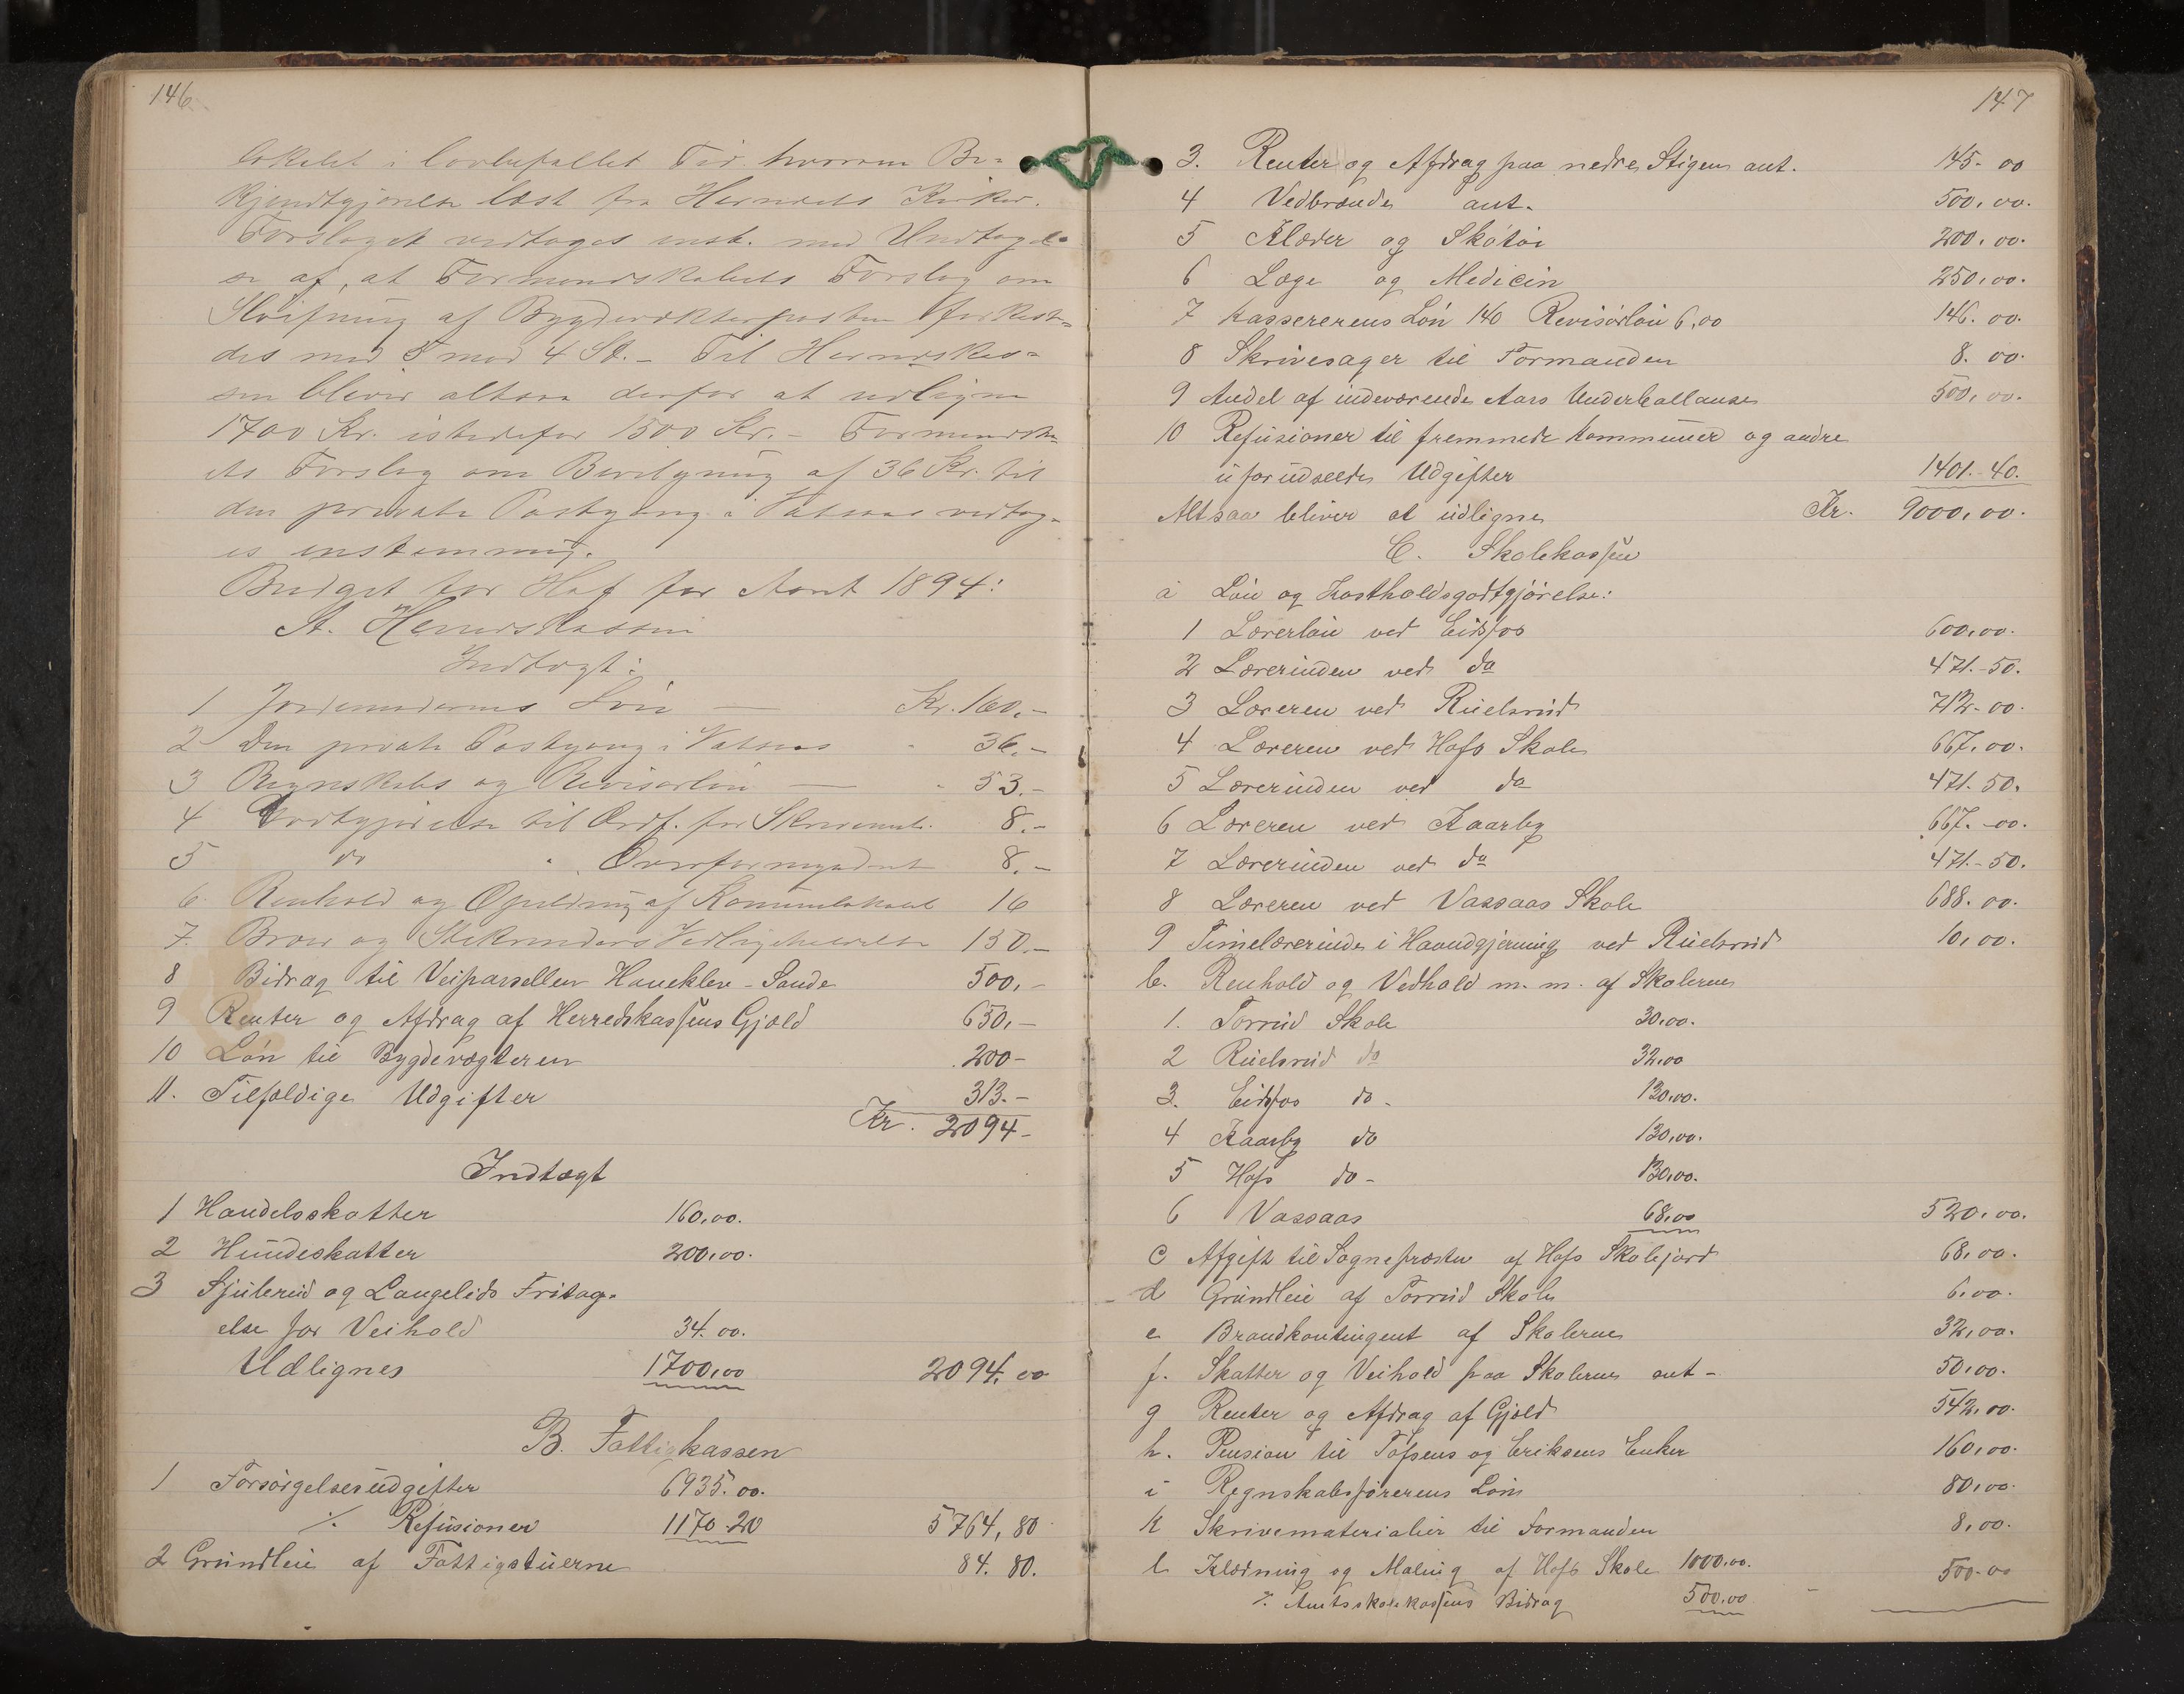 146.
lokalet i lovbefallet Tid. hvorom Be-
kjendtgjørelse læst fra Herredets Kirker.
Forslaget vedtoges enst. med Undtagel-
se af, at Formandskabets Forslag om
Sløifning af Bygdevægterposten forkast-
des med 5 mod 4 St. – Til Herredskas-
sen bliver altsaa derfor at udligne
1700 Kr. istedefor 1500 Kr. – Formandsk
ets Forslag om Bevilgning af 36 Kr. til
den private Postgang i Vatsaas vedtog-
es enstemmig.
Budget for Hof for Aaret 1894:
A. Herredskassen
Indtægt:
1 Jordemoderens Løn — Kr. 160.–
2 Den private Postgang i Vatsaas " 36.–
3 Regnskabs og Revisorløn — " 53.–
4 Godtgjørelse til Ordf. for Skrivemat. 8.–
5 do " Overformynderiet " 8.–
6. Renhold og Opvarmning af Kommunelokalet 16
7. Broer og Vedligeholdelse 150.–
8 Bidrag til Veiparsellen Haneklev – Sande 500.–
9 Renter og Afdrag af Herredskassens Gjæld 650.–
10 Løn til Bygdevægteren 200–
11. Tilfældige Udgifter 313.–
Kr. 2094–
Indtægt
1 Handelsskatter 160,00.
2 Hundeskatter 200,00.
3 Sjulerud og Langelids Fritag-
else for Veihold 34.00.
Udlignes 1700,00 2094,00
B. Fattigkassen
1 Forsørgelsesudgifter 6935.00.
./. Refusioner 1170.20 5764,80
2 Grundleie af Fattigstuerne 84.80.
147
3. Renter og Afdrag paa nedre Stigen ant. 145.00
4 Vedbrænde ant. 500,00.
5 Klæder og Skotøi 200,00.
6 Læge og Medicin 250,00.
7 Kassererens Løn 140 Revisorløn 6,00 146.00.
8 Skrivesager til Formanden 8.00.
9 Andel af indeværende Aars Underballanse 500,00.
10 Refusioner til fremmede Kommuner og andre
uforudseede Udgifter 1401.40.
Altsaa bliver at udligne Kr. 9000,00.
C. Skolekassen
a Løn og Kostholdsgodtgjørelse:
1 Lærerløn ved Eidsfos 600,00.
2 Lærerinden ved do 471.-50.
3 Læreren ved Ruelsrud 712.00.
4 Læreren ved Hofs Skole 667,00.
5 Lærerinden ved do 471.50.
6 Læreren ved Kaarby 667.-00.
7 Lærerinden ved do 471.-50.
8 Læreren ved Vassaas Skole 688.00.
9 Timelærerinde i Haandgjerning ved Ruelsrud 10,00.
b. Renhold og Vedhold m. m. af Skolerne
1. Torrud Skole 30,00.
2 Ruelsrud do 32,00
3. Eidsfos do - 130,00.
4 Kaarby do 130,00.
5 Hofs do - 130,00.
6 Vassaas 68,00 520,00.
c Afgift til Sognepræsten af Hofs Skolejord 68,00.
d Grundleie af Torrud Skole 6,00.
e Brandkontingent af Skolerne 32,00.
f. Skatter og Veihold paa Skolerne ant - 50,00.
g Renter og Afdrag af Gjæld 542,00.
h. Pension til Tofsens og Eriksens Enker 160,00.
i Regnskabsførerens Løn 80,00.
k Skrivematerialier til Formanden 8,00.
l Klædning og Maling af Hofs Skole 1000,00. 500.00
./. Amtsskolekassens Bidrag 500,00